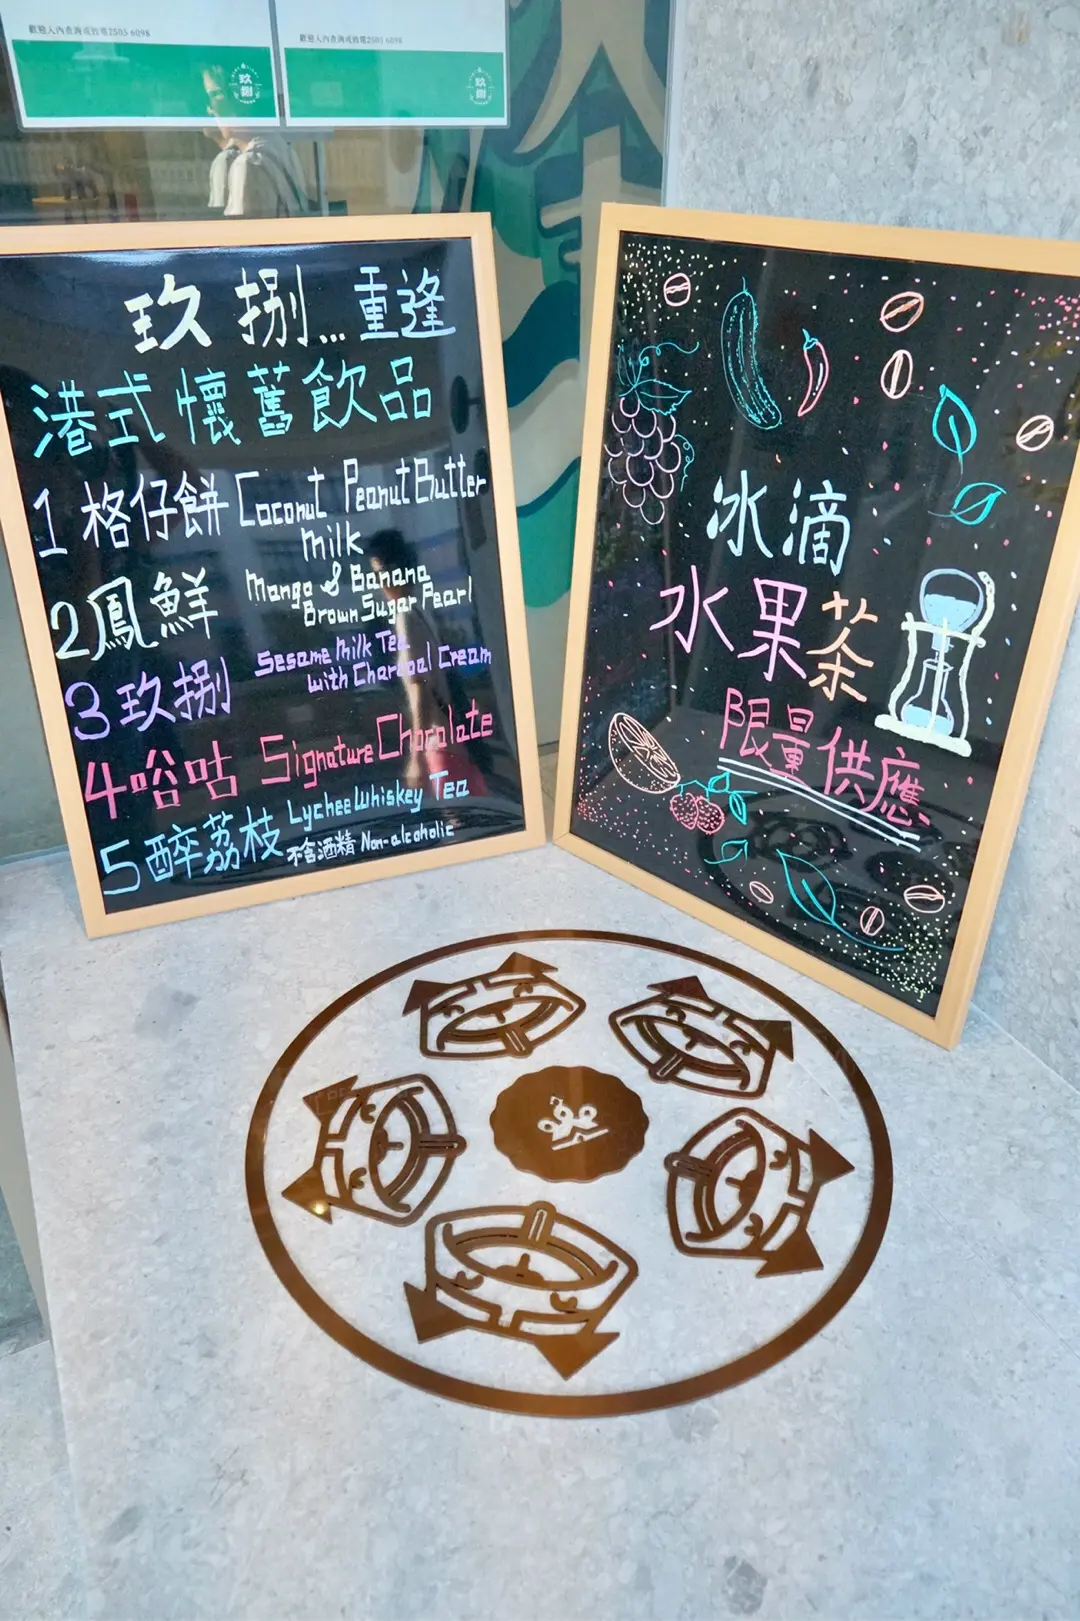 歡迎入內查詢或致電2505 6098
歡迎入內查詢或致電2505 6098
玖捌
玖捌
玖捌...重逢
港式懷舊飲品
1 格仔餅 Coconut Peanut Butter
Milk
2 鳳鮮 Mango & Banana
Brown Sugar Pearl
3 玖捌 Sesame Milk Tea
with Charcoal Cream
4 唂咕 Signature Chocolate
5 醉荔枝 Lychee Whiskey Tea
不含酒精 Non-alcoholic
冰滴
水果茶
限量供應